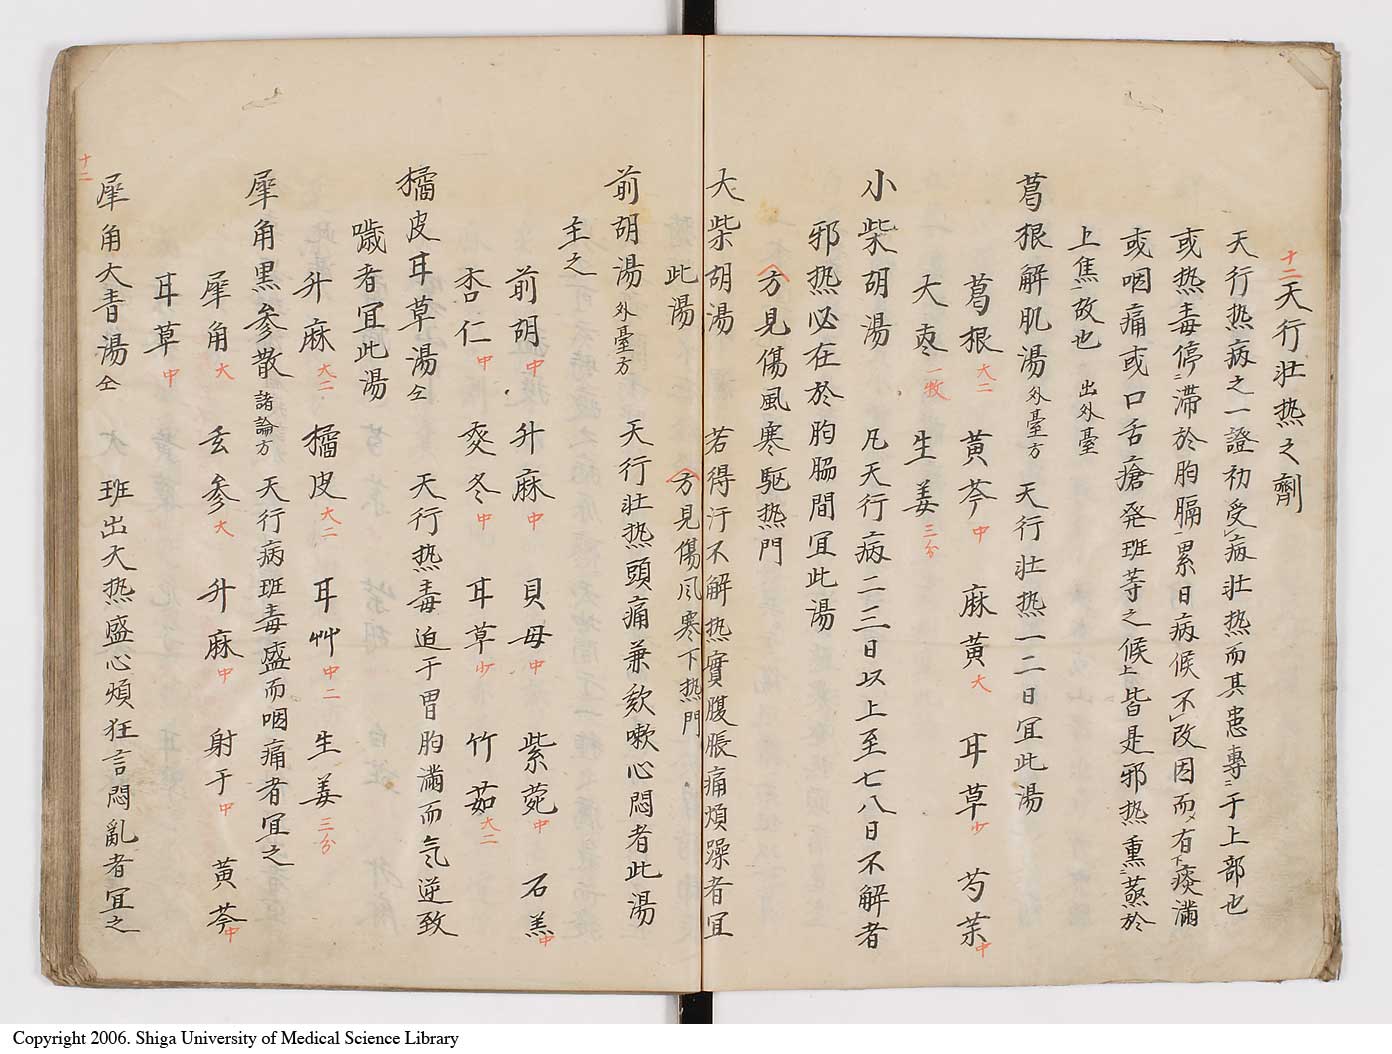 十二天行壮热之劑
天行热病之一證初受病壮热而其患專于上部也
或热毒停滞於胸膈累日病候不改因而有痰滿
或咽痛或口舌瘡発班等之候皆是邪热熏蒸於
上焦故也 出外臺
葛根解肌湯 外臺方 天行壮热一二日宜此湯
葛根 大二 黄芩 中 麻黄 大 耳草 少 芍茱 中
大枣 一牧 生姜 三分
小柴胡湯 凡天行病二三日以上至七八日不解者
邪热必在於胸脇間宜此湯
方見傷風寒駆热門
大柴胡湯 若得汗不解热實腹脹痛煩躁者宜
此湯 方見傷风寒下热門
前胡湯 外臺方 天行壮热頭痛兼欬嗽心悶者此湯
主之
前胡 中 升麻 中 貝母 中 紫菀 中 石羔 中
杏仁 中 麦冬 中 耳草 少 竹茹 大二
橘皮耳草湯 仝 天行热毒迫于胃胸滿而気逆致
噦者宜此湯
升麻 大二 橘皮 大一 耳艸 中二 生姜 三分
犀角黒参散 諸論方 天行病班毒盛而咽痛者宜之
犀角 大 玄参 大 升麻 中 射于 中 黄芩 中
耳草 中
十二
犀角大青湯 仝 班出大热盛心煩狂言悶亂者宜之
Copyright 2006. Shiga University of Medical Science Library